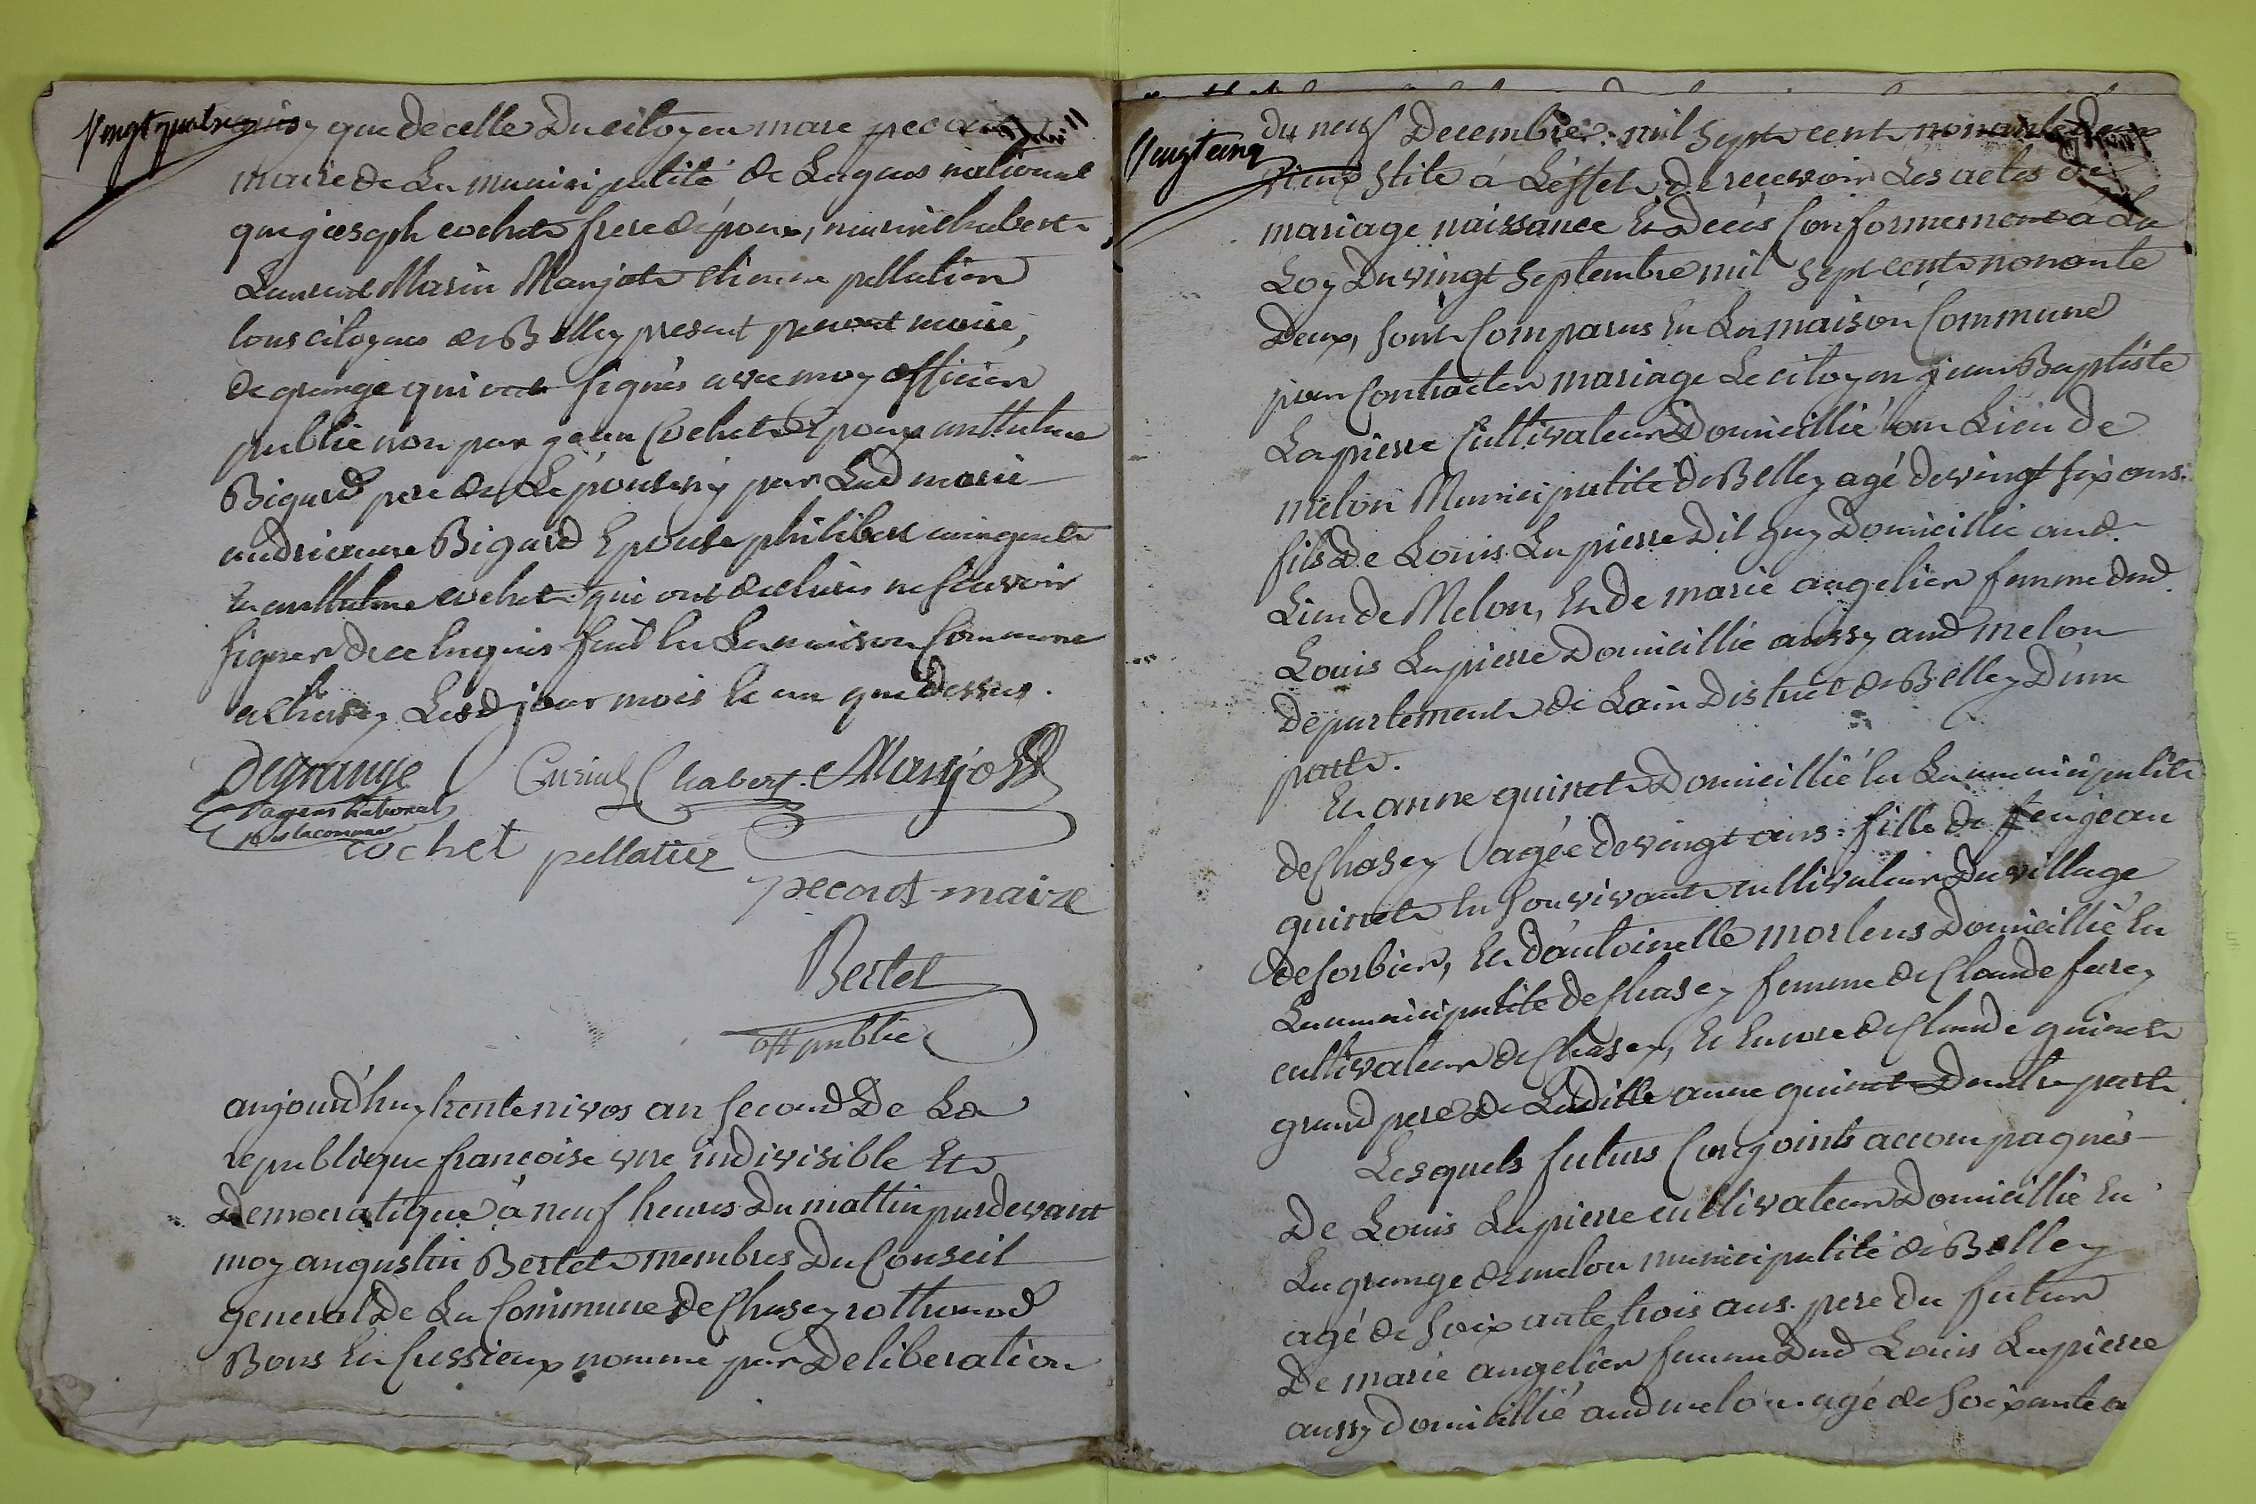 Vingt quatre
que de celle Du citoyen marc pecout
maire de La municipalité de Lagnes national
que joseph cochet frere de époux, curial chabert
Laurent Marin Manjot etienne pellatier
tous citoyens de Belley present pecout maire,
degrange qui ont signés avec moy officier
public non par jean Cochet Epoux anthelme
Bigard pere de Lépouse ny par Lad marie
andrienne Bigard Epouse philibert
en anthelme cochet qui ont declarés ne scavoir
signer de ce enquis fait En La maison Commune
a chasey Lesd jour mois et an que Dessus.
Degrange Curial Chabert Manjot
L'agent national
pour la commune
cochet pellatier
pecout maire
Bertet
off public
aujourd'huy trente nivos an second De La
republique francoise une indivisible Et
Democratique à neuf heures Du mattin pardevant
moy augustin Bertet membres Du Conseil
general De La Commune de Chasey rothonod
Bons En Cussieux nomme par Deliberation
Vingt cinq
du neuf Decembre mil sept cent nonante Deux
vieux stile à L'effet De recevoir Les actes De
mariage naissance Et Decès Conformement à La
Loy Du vingt Septembre mil Sept cent nonante
Deux, sont Comparus En La maison Commune
pour Contracter mariage Le citoyen jean Baptiste
Lapierre Cultivateur Domicillié au Lieu de
melon Municipalité de Belley agé de vingt six ans.
fils De Louis Lapierre Dit guy Domicillié aud.
Lieu de Melon, Et De marie angelier femme dud.
Louis Lapierre Domicillié aussy aud melon
Departement de Lain District de Belley D'une
part.
Et anne quinet Domicillié En La municipalité
de Chasey agée de vingt ans: fille de feu jean
quinet En son vivant cultivateur Du village
de sorbier, Et D'antoinette morlens Domicillié En
La municipalité de Chasey femme de Claude ferrey
cultivateur de Chasey, Et Encore de Claude quinet
grand pere De Ladille anne quinet Dautre part.
Lesquels futurs Conjoints accompagnés
De Louis Lapierre cultivateur Domicillié En
La grange de melon municipalité de Belley
agé de soixante trois ans. pere du futur
De marie angelier femme Dud Louis Lapierre
aussy domicillié aud melon agé de soixante